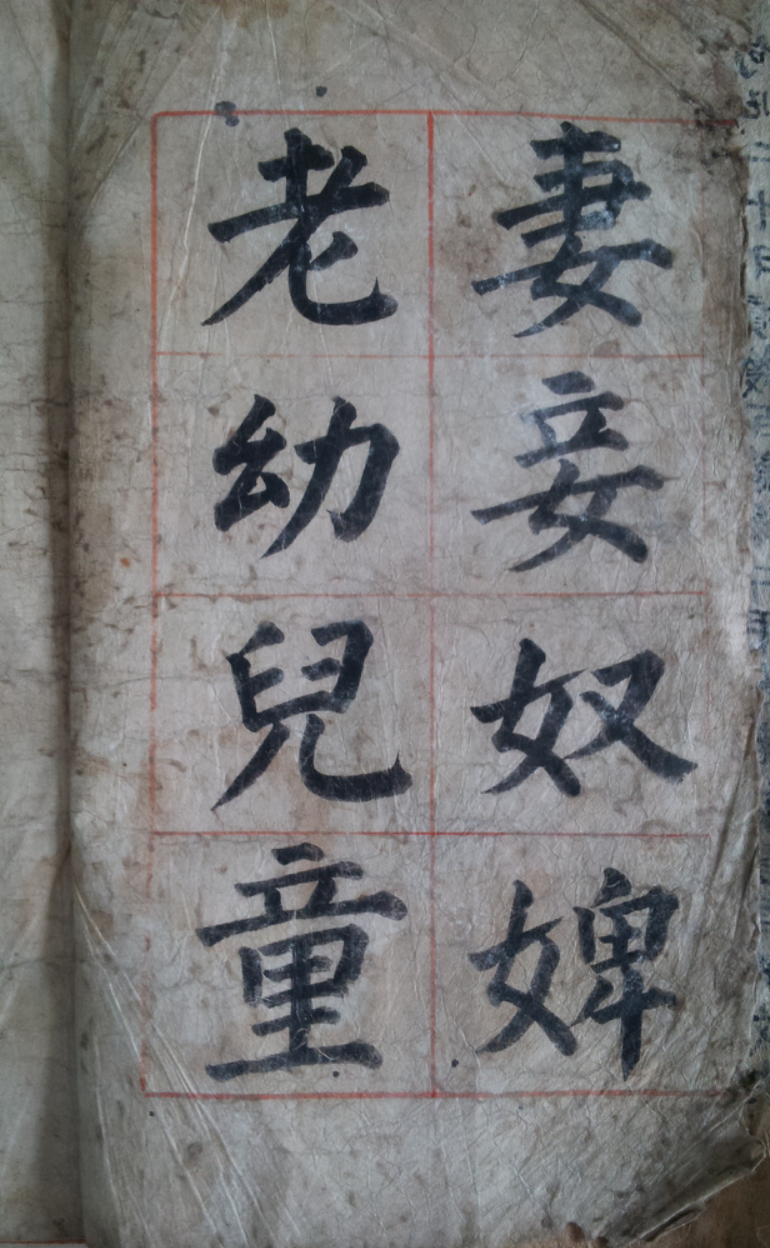 妻妾奴婢
老幼兒童